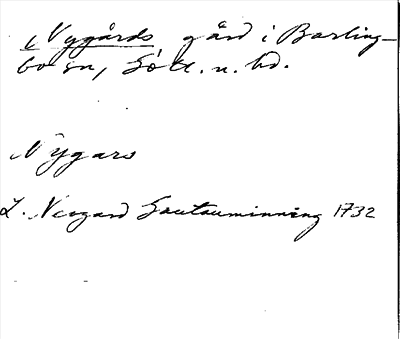 Nygårds gård i Barling-
bo sn, Gotl. n. hd.
Nygars
L. Neogard Gautauminning 1732